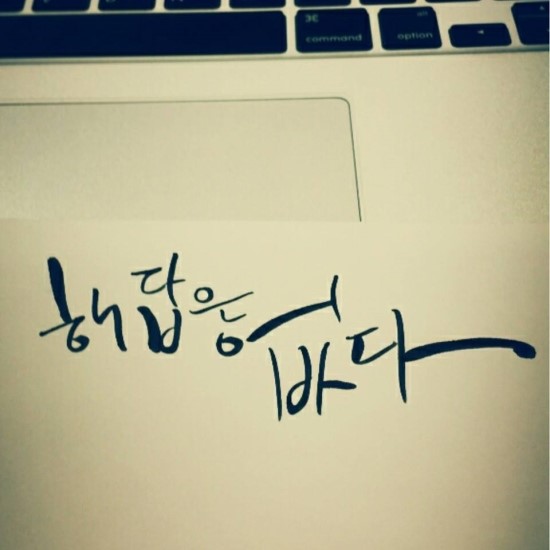 ⌘
command
option
◄
해답은 없다